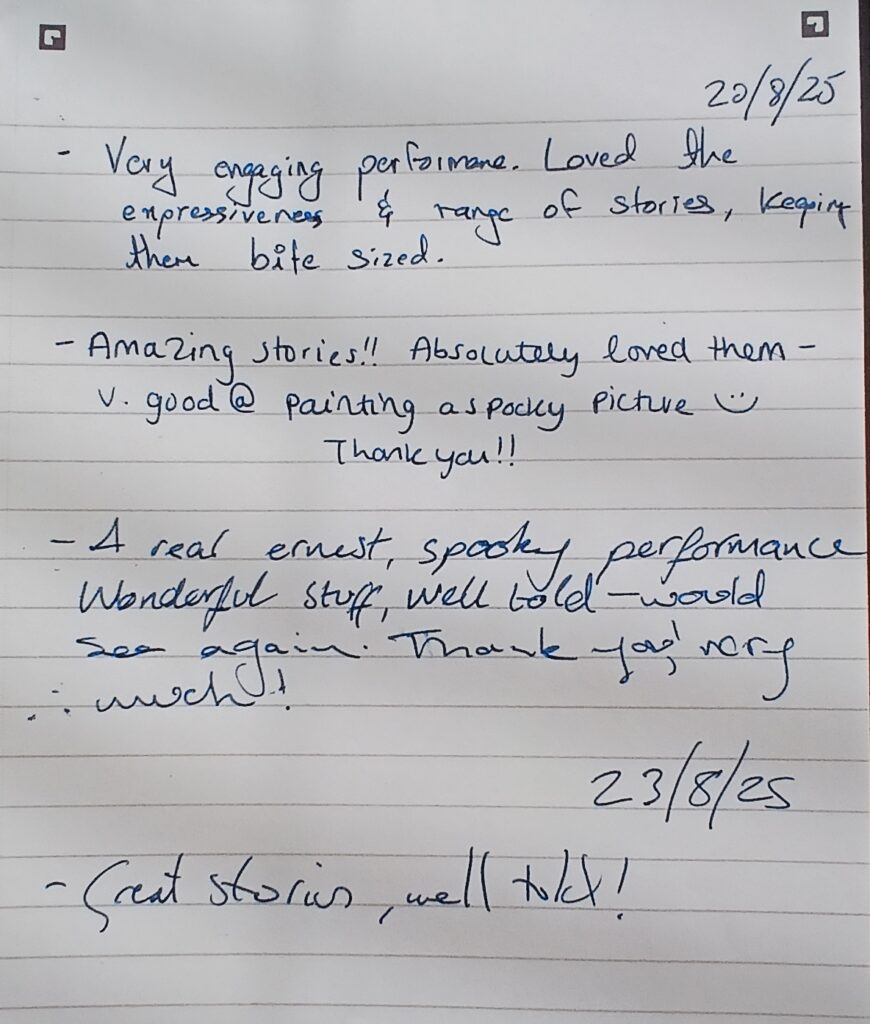 20/8/25
- Very engaging performane. Loved the
expressiveness & range of stories, keeping
them bite sized.
- Amazing stories!! Absolutely loved them -
v. good @ painting a spooky picture :)
Thank you!!
- A real ernest, spooky performance
Wonderful stuff, well told - would
see again. Thank you very
much!
23/8/25
- Great stories, well told!